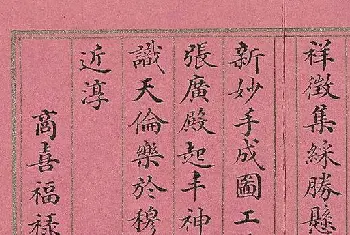 祥徵集綵勝縣
新妙手成圖工
張廣殿起丰神
識天倫樂於穆
近淳
商喜福祿